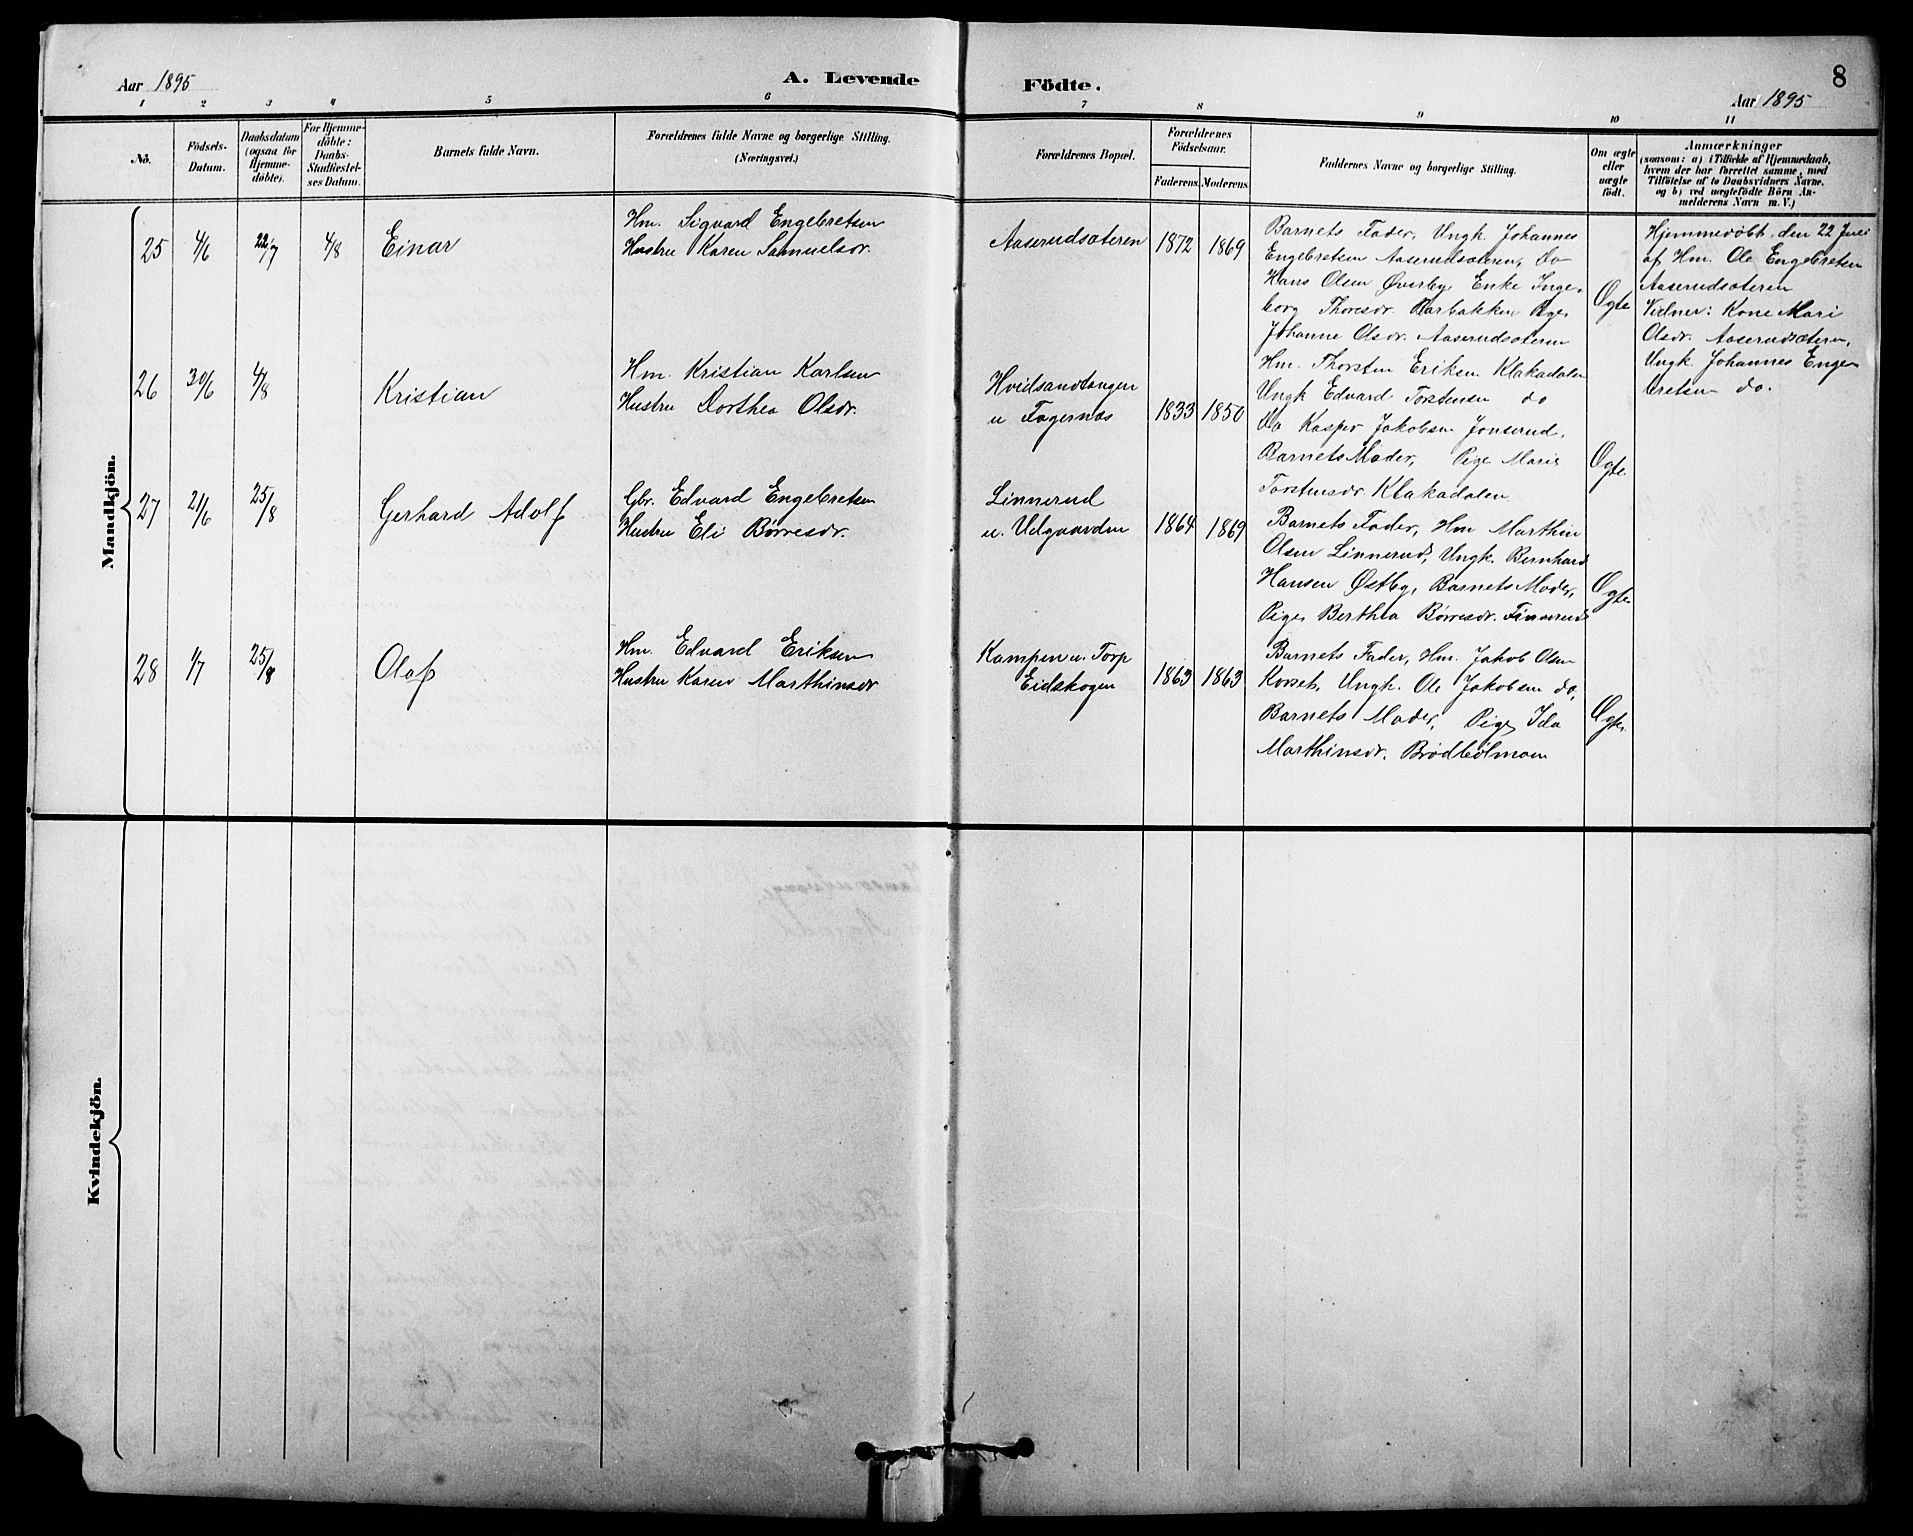 Aar 1895
A. Levende
Födte.
8
Aar 1895
1 2 3 4 5 6 7 8 9 10 11
No.
Födsels-
Datum.
Daabsdatum
(ogsaa for
Hjemme-
döbte).
For Hjemme-
döbte:
Daabs-
Stadfæstel-
ses Datum.
Barnets fulde Navn.
Forældrenes fulde Navne og borgerlige Stilling.
(Næringsvei.)
Forældrenes Bopæl.
Forældrenes
Födselsaar.
Faderens. Moderens.
Faddernes Navne og borgerlige Stilling.
Om ægte
eller
uægte
födt.
Anmærkninger
(saasom: a) i Tilfælde af Hjemmedaab,
hvem der har forrettet samme, med
Tilföielse af to Daabsvidners Navne,
og b) ved uægtefödte Börn An-
melderens Navn m. V.)
Mandkjön.
25 4/6 22/7 4/8 Einar
Hm. Sigvard Engebretsen
Hustru Karen Samuelsdr.
Aaserudsæteren 1872 1869
Barnets Fader, Ungk. Johannes
Engebretsen Aaserudsæteren, do
Hans Olsen Øverby, Enke Inge-
borg Thoresdr. Pige
Johanne Olsdr. Aaserudsæteren
Ægte
Hjemmedøbt den 22 Juli
af Hm. Ole Engebretsen
Aaserudsæteren
Vidner: Kone Mari
Olsdr. Aaserudsæteren,
Ungk. Johannes Enge-
bretsen do.
26 30/6 4/8 Kristian
Hm. Kristian Karlsen
Hustru Dorthea Olsdr.
Hvidsandtangen
u Fagernæs 1833 1850
Hm. Thorsten Eriksen Klakadalen
Ungk Edvard Torstensen do
Do Kasper Jakobsen Jonserud.
Barnets Moder, Pige Marie
Torstensdr. Klakadalen
Ægte
27 21/6 25/8 Gerhard Adolf
Gbr. Edvard Engebretsen
Hustru Eli Børresdr.
Linnerud
u. Udgaarden 1864 1869
Barnets Fader, Hm Marthin
Olsen Linnerud, Ungk. Bernhard
Hansen Østby, Barnets Moder,
Pige Berthea Børresdr. Finnerud
Ægte
28 1/7 25/8 Olaf
Hm. Edvard Eriksen
Hustru Karen Marthinsdr
Kampen u. Torp
Eidskogen 1863 1863
Barnets Fader, Hm. Jakob Olsen
Korset, Ungk. Ole Jakobsen do,
Barnets Moder, Pige Ida
Marthinsdr. Brødbølmoen
Ægte.
Kvindekjön.